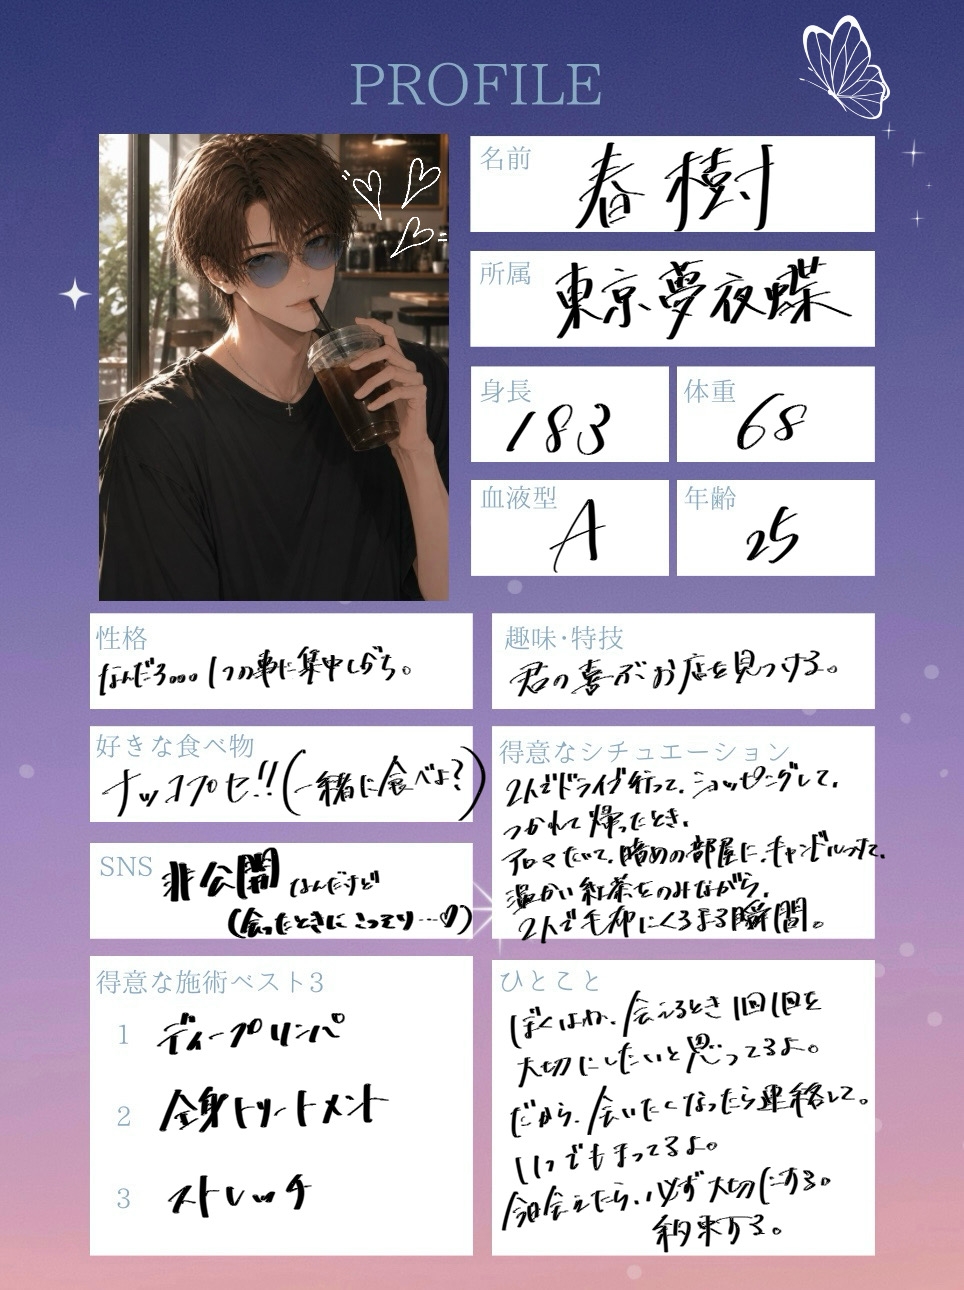 PROFILE
名前
春樹
所属
東京夢夜蝶
身長
183
体重
68
血液型
A
年齢
25
性格
なんだろ。。。1つの事に集中しがち。
趣味・特技
君の喜ぶお店を見つける。
好きな食べ物
ナッコプセ!!(一緒に食べよ?)
得意なシチュエーション
2人でドライブ行って、ショッピングして、
つかれて帰ったとき、
アロマたいて、暗めの部屋に、キャンドルつけて、
温かい紅茶をのみながら、
2人で毛布にくるまる瞬間。
SNS
非公開なんだけど
(会ったときにこっそり…♡)
得意な施術ベスト3
1 ディープリンパ
2 全身トリートメント
3 ストレッチ
ひとこと
ぼくはね、会えるとき1回1回を
大切にしたいと思ってるよ。
だから、会いたくなったら連絡して。
いつでもまってるよ。
今日会えたら、必ず大切にする。
約束する。